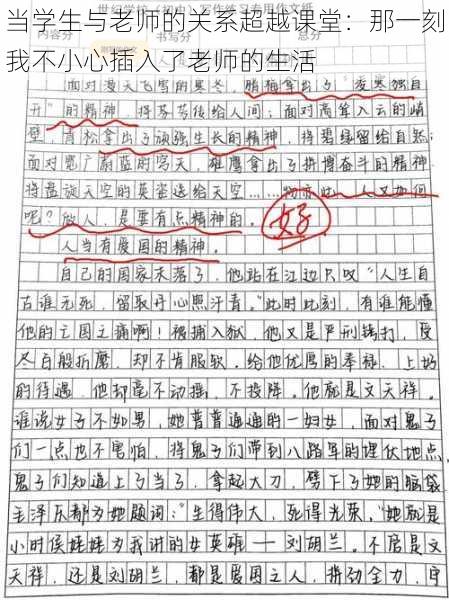 当学生与老师的关系超越课堂：那一刻
我不小心插入了老师的生活
世纪学校（初中）写作练习专用作文纸
内容分 书写分
面对漫天飞雪的寒冬，腊梅拿出了“凌寒独自
开”的精神，将芬芳传给人间；面对高耸入云的峭
壁，青松拿出了顽强生长的精神，将碧绿留给自然；
面对宽广蔚蓝的穹天，雄鹰拿出了拼搏奋斗的精神
将盘旋天空的英姿送给天空……物亦如此，人又如何
呢？做人，是要有点精神的。
好
人当有爱国的精神。
自己的国家末落了，他站在江边只叹“人生自
古谁无死，留取丹心照汗青。”此时此刻，有谁能懂
他的亡国之痛啊！被捕入狱，他又是严刑拷打，受
尽百般折磨，却不肯服软。给他优厚的奉禄、上好
的待遇，他却毫不动摇，不投降。他就是文天祥。
谁说女子不如男，她普普通通的一妇女，面对鬼子
们一点也不害怕，将鬼子们带到八路军的埋伏地点，
鬼子们知道上了当了，拿起大刀，劈下了她的脑袋
毛泽东都为她题词：“生得伟大，死得光荣。”她就是
小时侯娃娃为我讲的女英雄——刘胡兰。不管是文
天祥，还是刘胡兰，都是爱国之人，拼劲全力，守